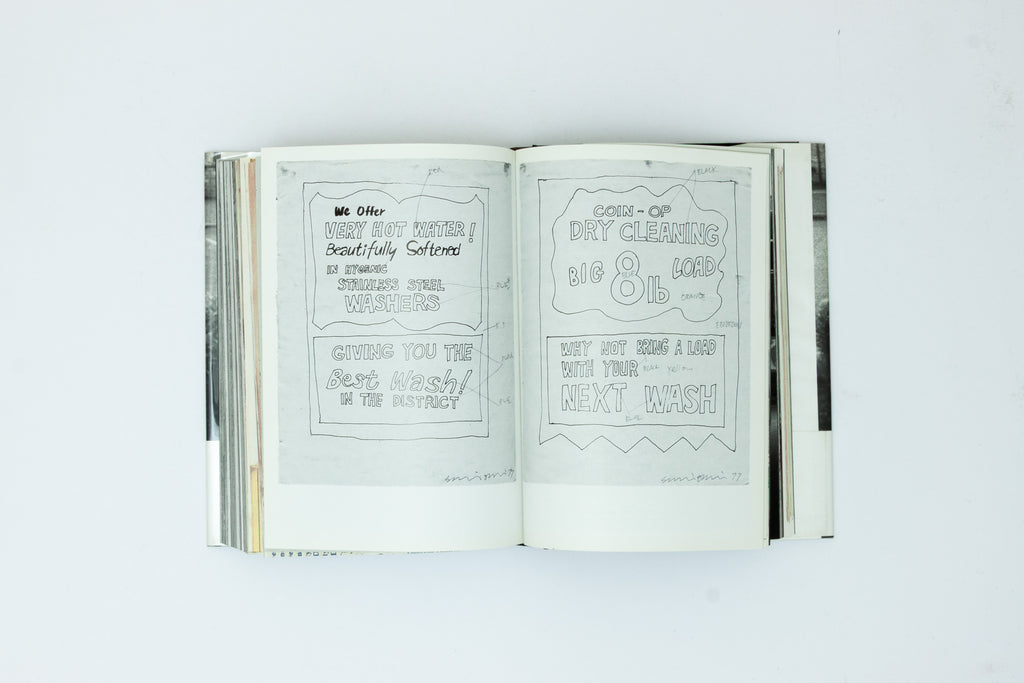 We Offer
VERY HOT WATER!
Beautifully Softened
IN HYGENIC
STAINLESS STEEL
WASHERS
GIVING YOU THE
Best Wash!
IN THE DISTRICT
77
BLACK
COIN-OP
DRY CLEANING
BIG 8 lb LOAD
BLUE
ORANGE
WHY NOT BRING A LOAD
WITH YOUR
BLACK Yellow
NEXT WASH
77